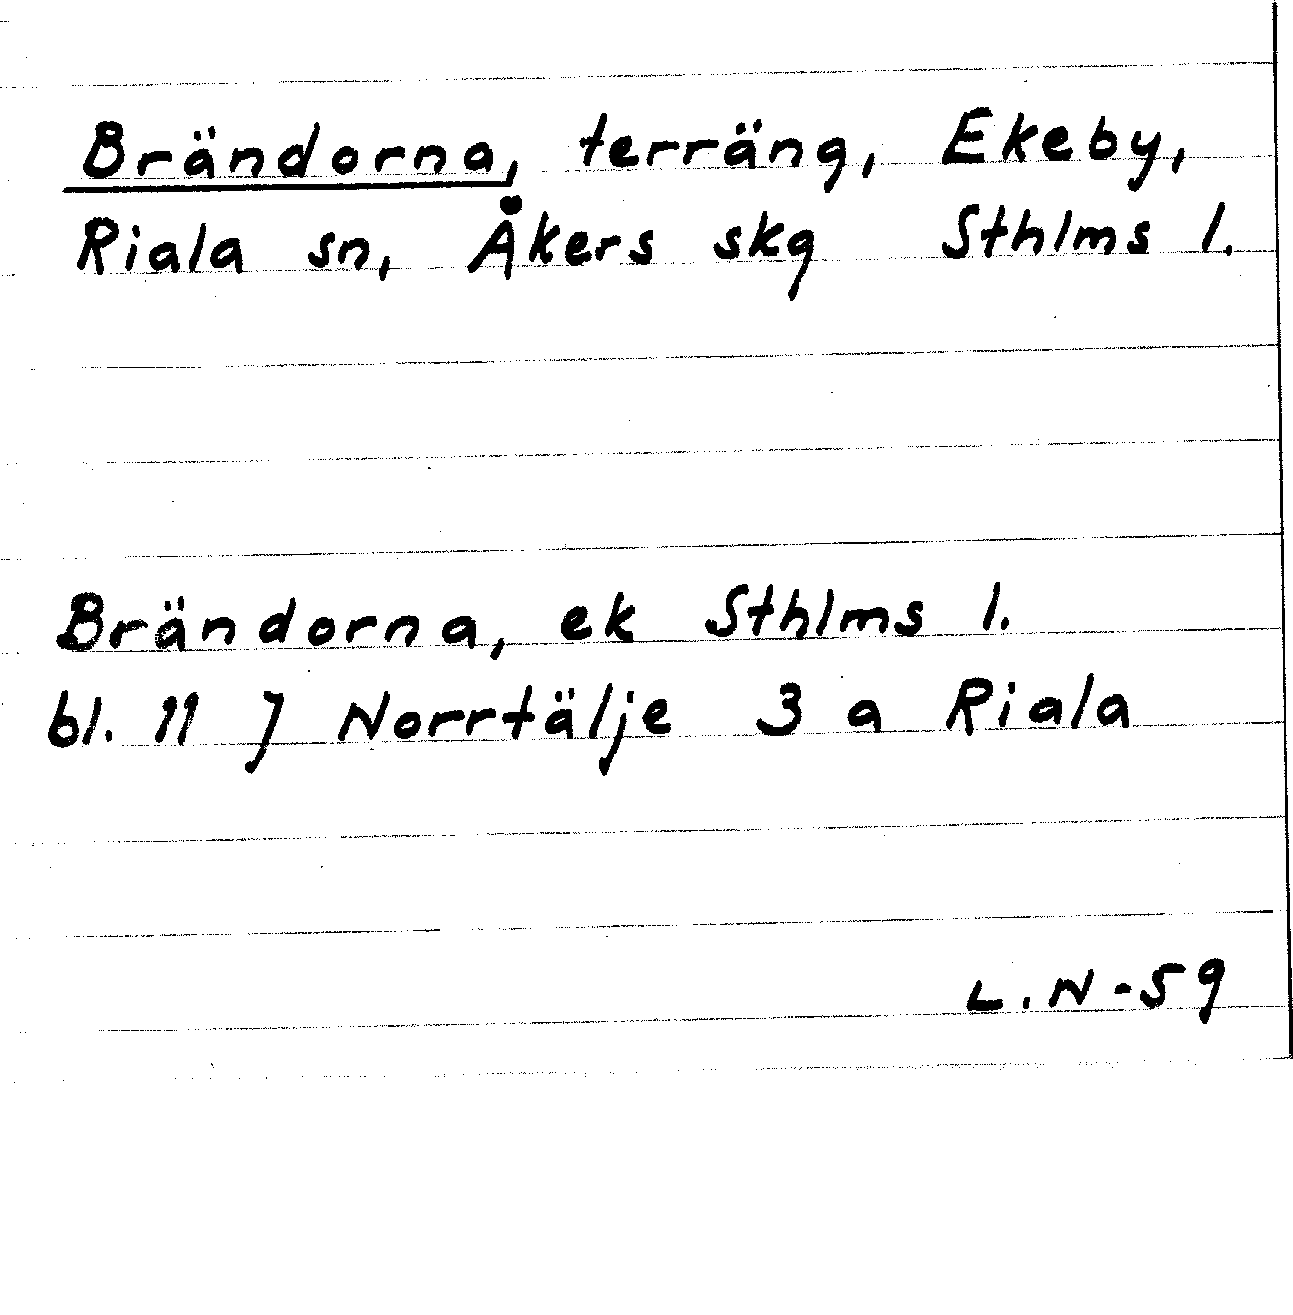 Brändorna, terräng, Ekeby,
Riala sn, Åkers skg Sthlms l.
Brändorna, ek Sthlms l.
bl. 11 J Norrtälje 3 a Riala
L.N-59